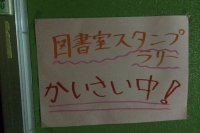 図書室スタンプ
ラリー
かいさい中!